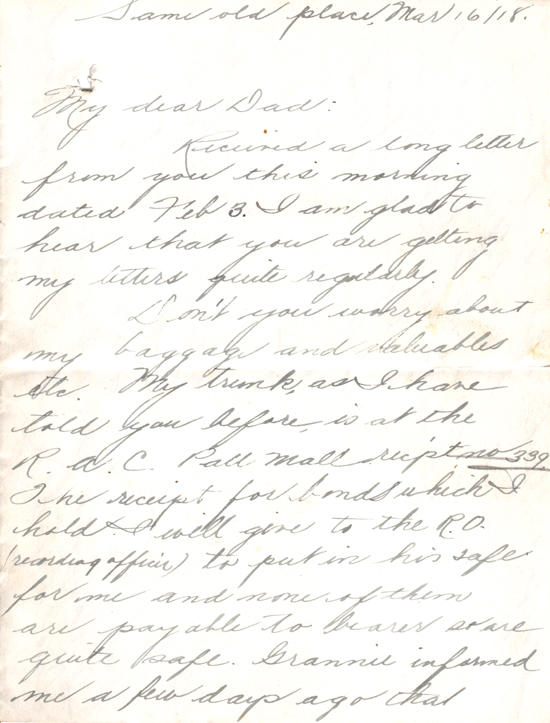 Same old place, Mar 16/18.
My dear Dad:
Received a long letter
from you this morning
dated Feb 3. I am glad to
hear that you are getting
my letters quite regularly.
Don't you worry about
my baggage and valuables
etc. My trunk, as I have
told you before, is at the
R. A. C. Pall Mall rec'pt no 339.
The receipt for bonds which I
hold I will give to the R.O.
(recording officer) to put in his safe
for me and none of them
are payable to bearer so are
quite safe. Grannie informed
me a few days ago that